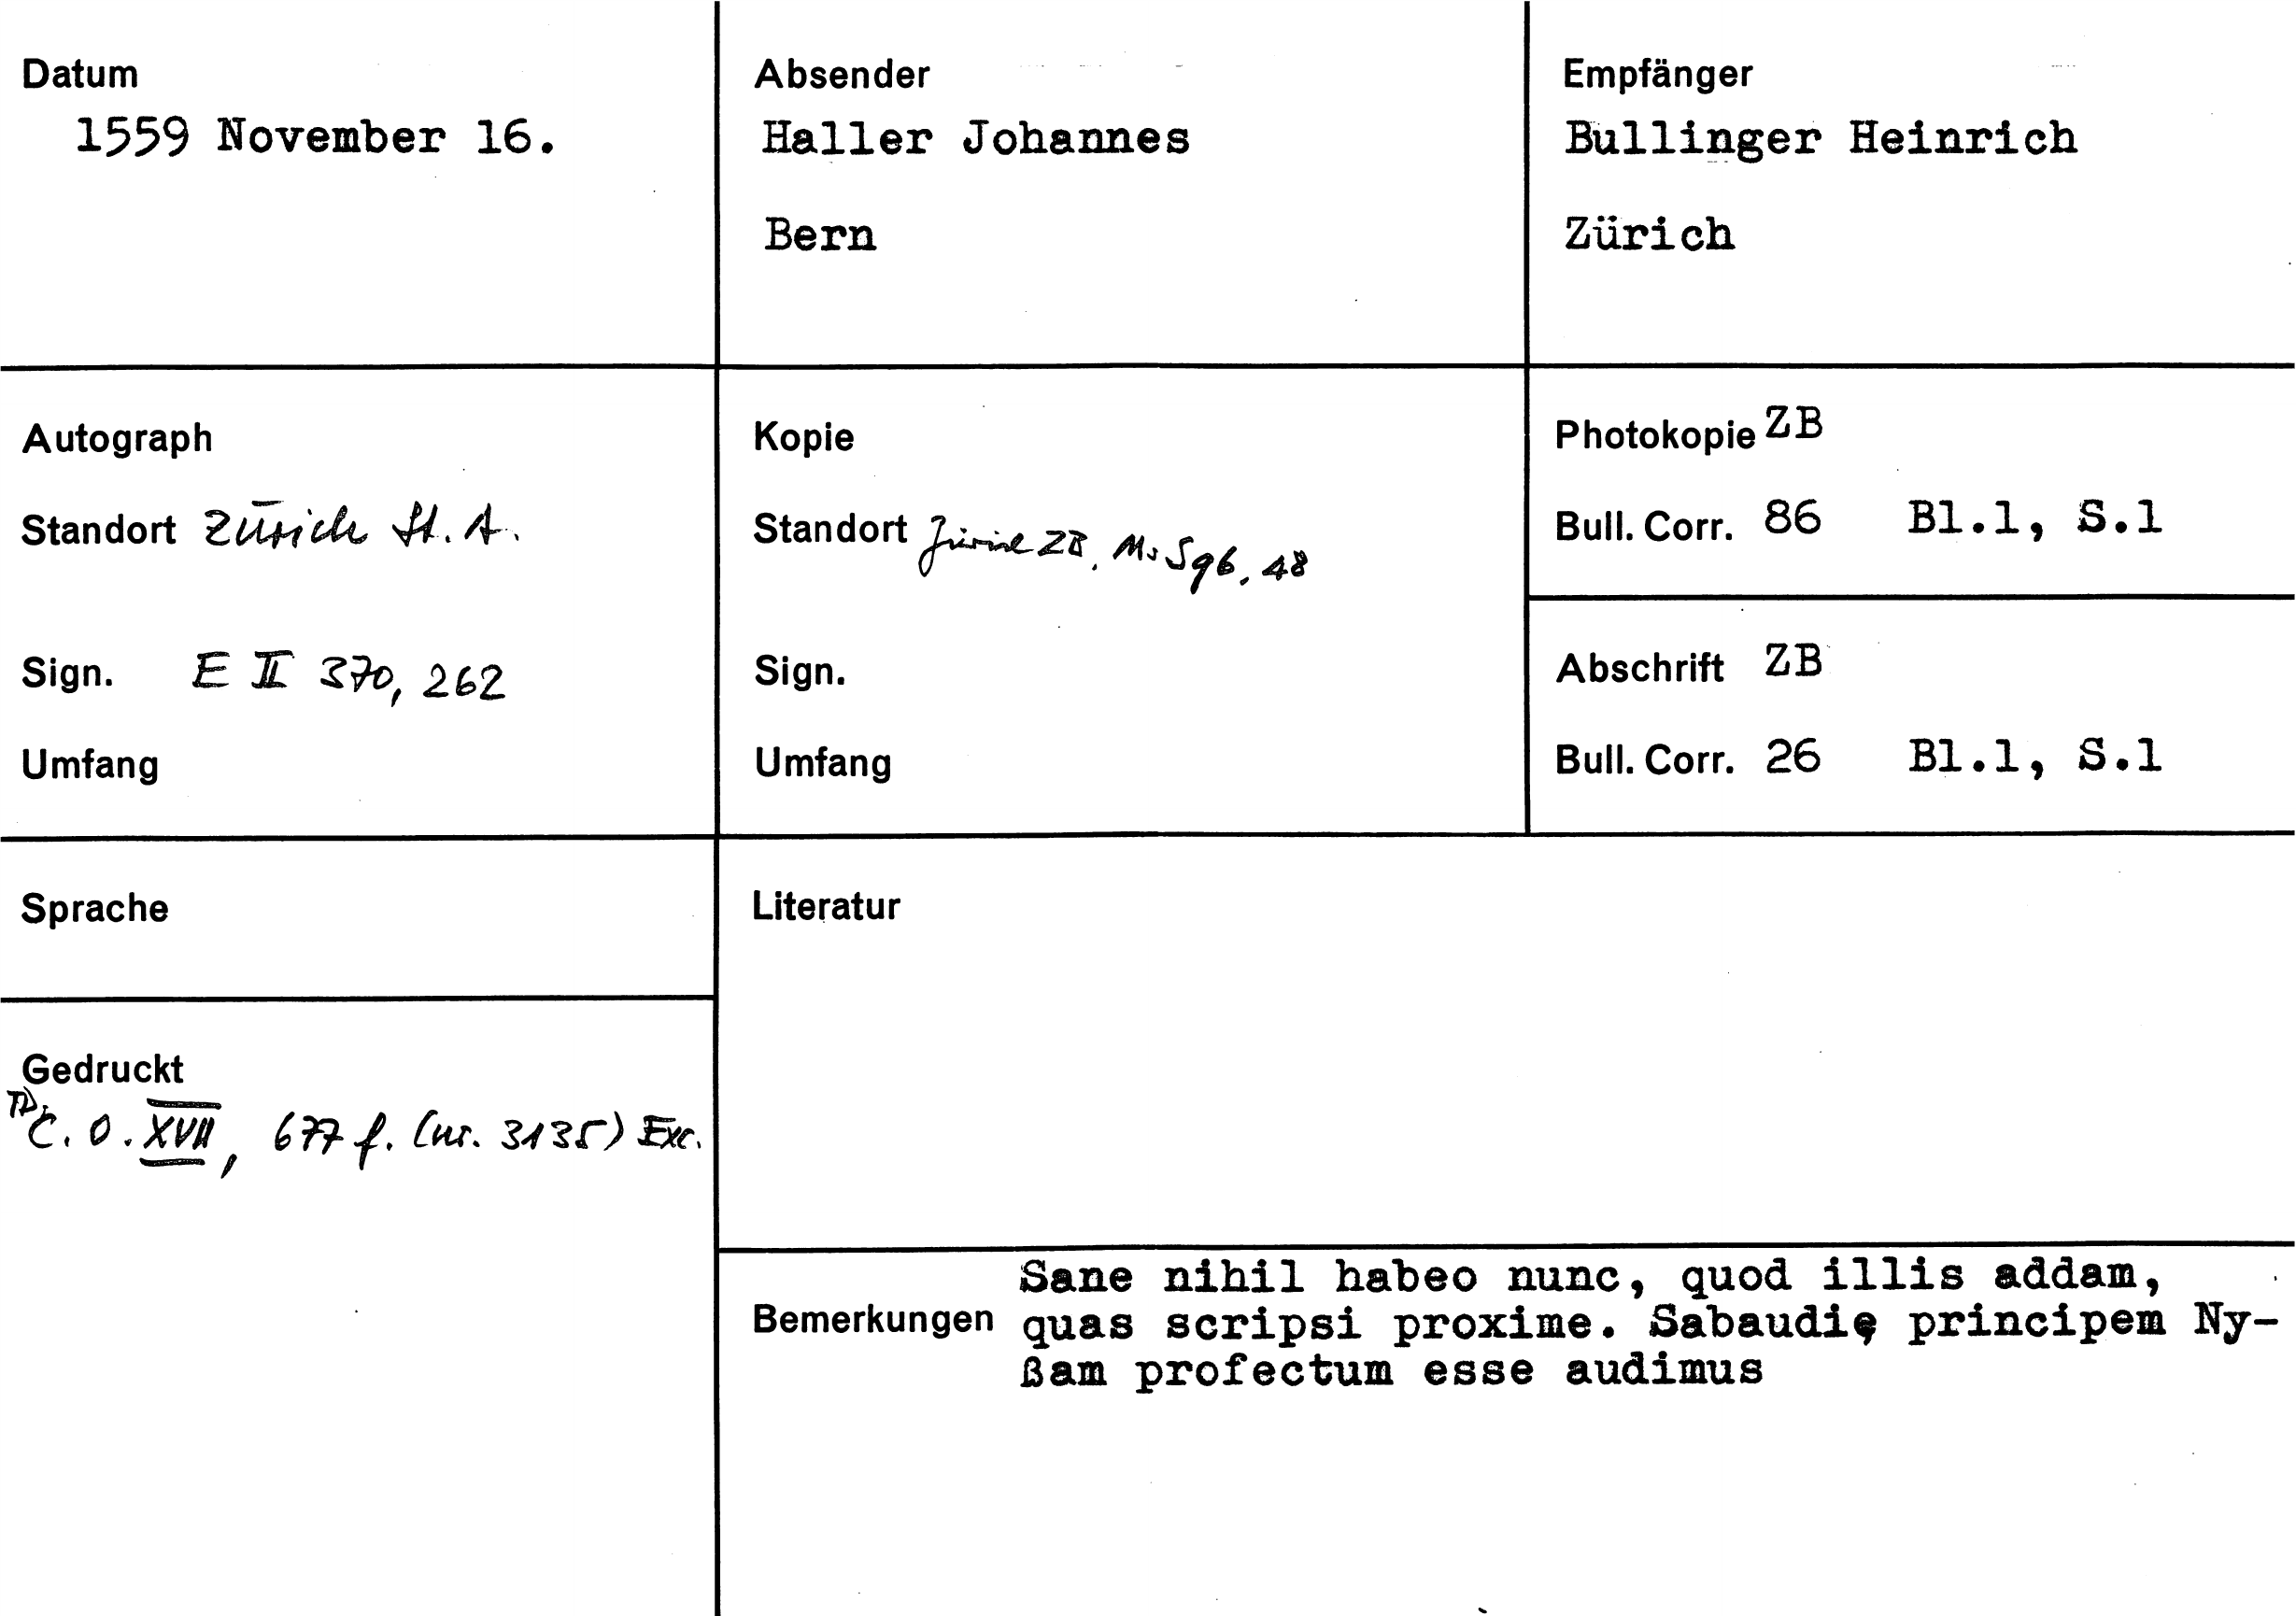 Datum
1559 November 16.
Absender
Haller Johannes
Bern
Empfänger
Bullinger Heinrich
Zürich
Autograph
Standort Zürich St. A.
Sign. E II 370, 262
Umfang
Kopie
Standort Zürich ZB, Ms S 96, 48
Sign.
Umfang
Photokopie ZB
Bull. Corr. 86 Bl.1, S.1
Abschrift ZB
Bull. Corr. 26 Bl.1, S.1
Sprache
Literatur
Gedruckt
C. O. XVII, 677 f. (nr. 3135) Exc.
Bemerkungen
Sane nihil habeo nunc, quod illis addam,
quas scripsi proxime. Sabaudię principem Ny-
ßam profectum esse audimus